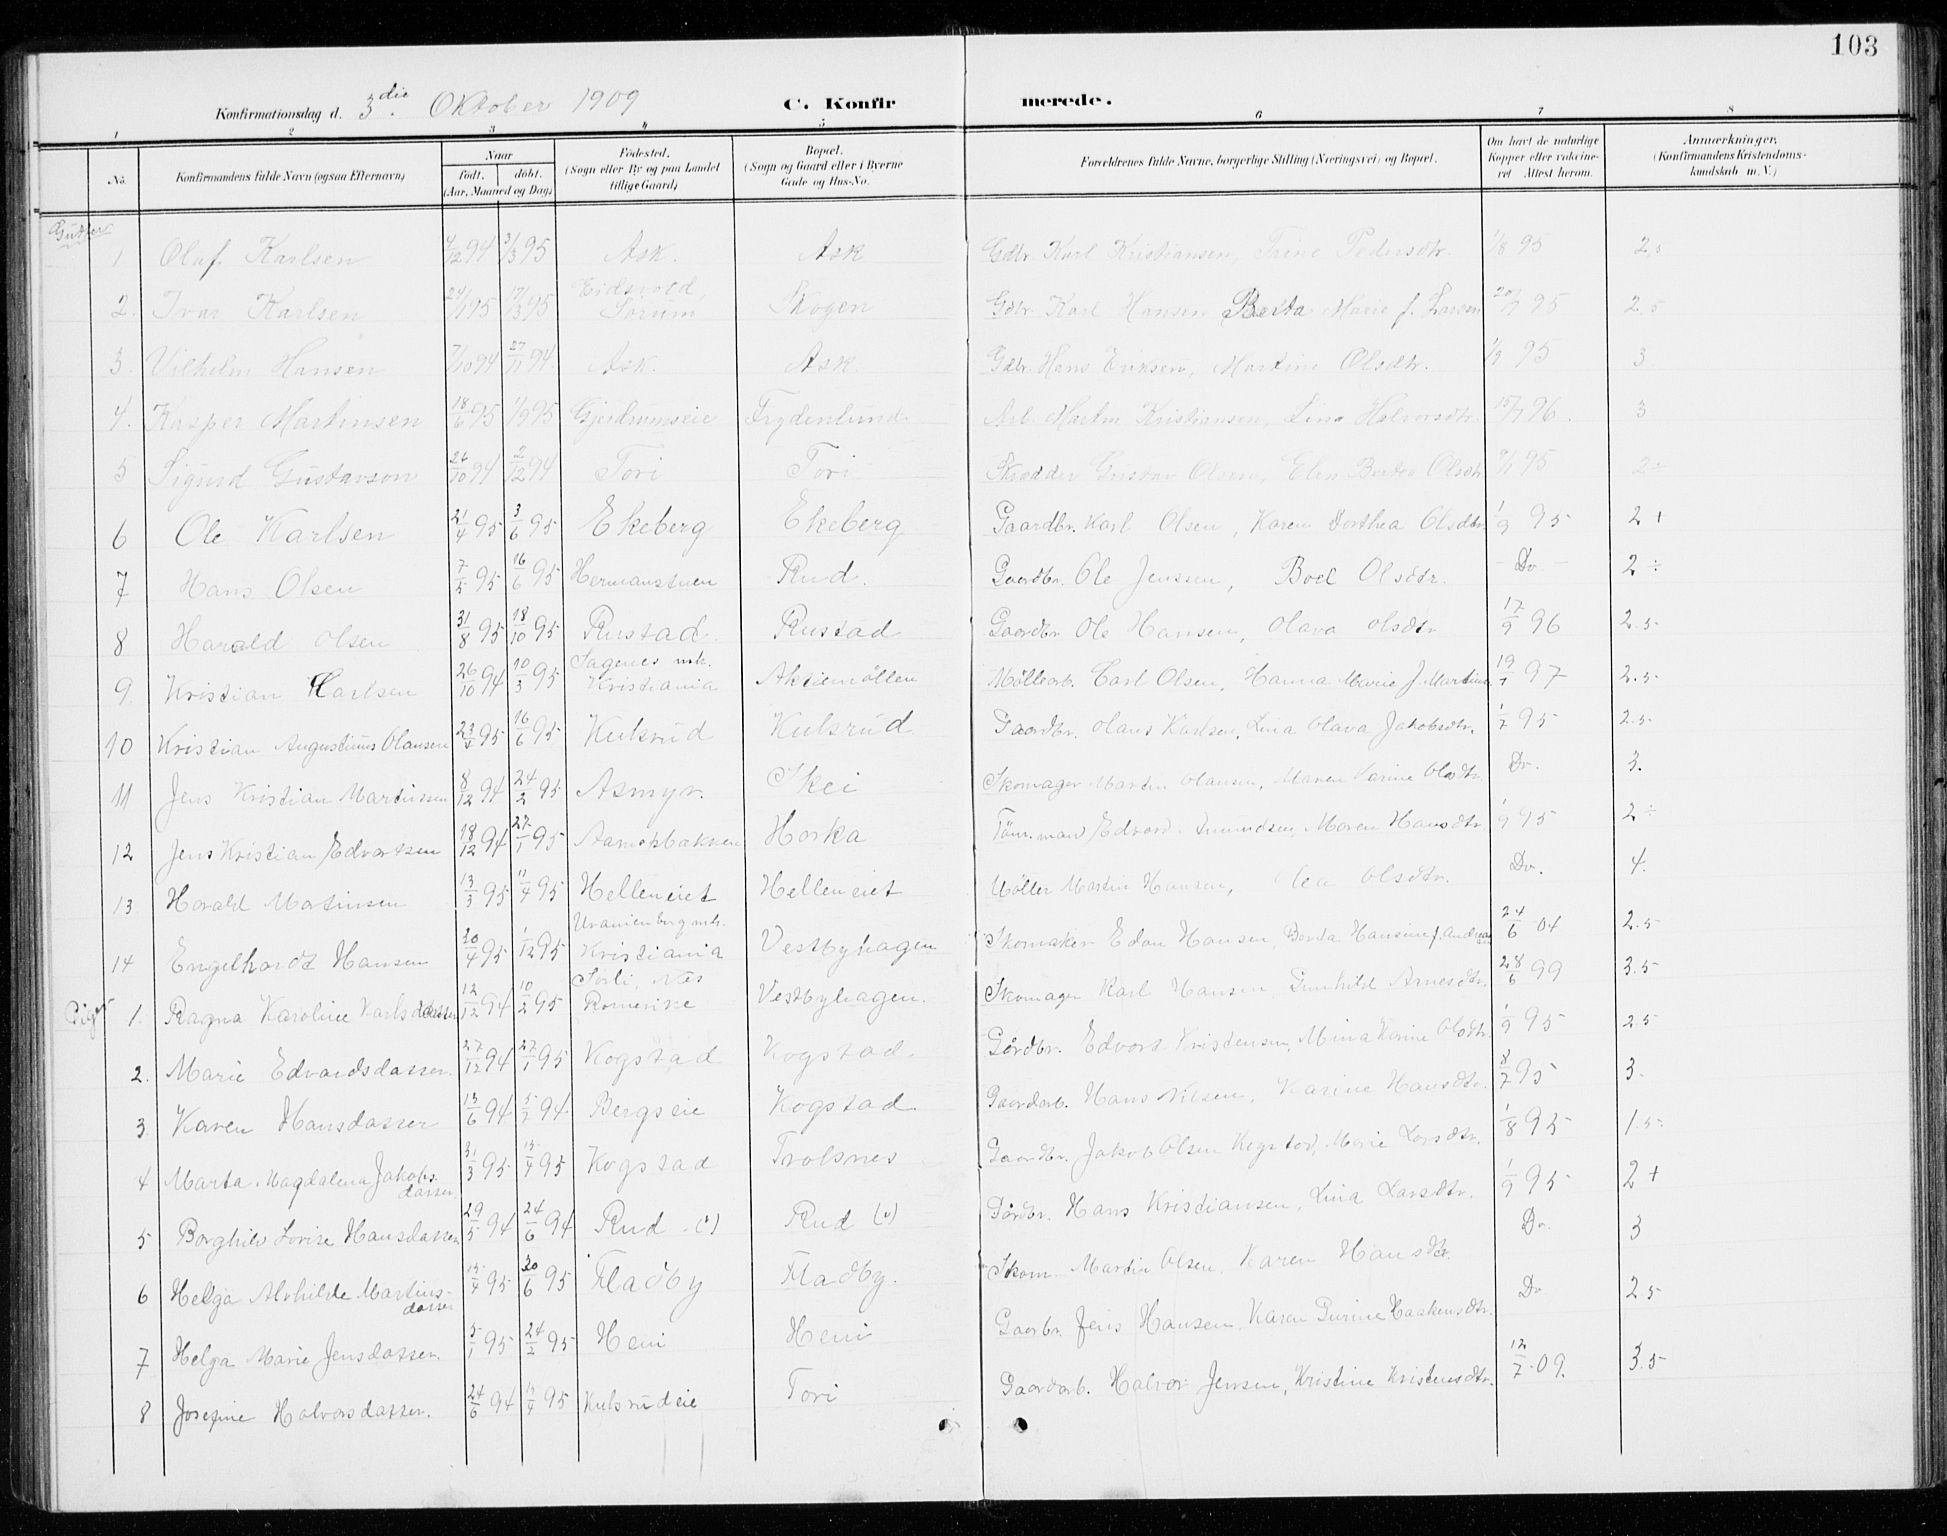 103
Konfirmationsdag d. 3die Oktober 1909 C. Konfir merede.
1 2 3 4 5 6 7 8
No. Konfirmandens fulde Navn (ogsaa Efternavn) Naar födt. döbt. (Aar, Maaned og Dag) Födested. (Sogn eller By og paa Landet tillige Gaard) Bopæl. (Sogn og Gaard eller i Byerne Gade og Hus-No. Forældrenes fulde Navne, borgerlige Stilling (Næringsvei) og Bopæl. Om havt de naturlige Kopper eller vaccineret Attest herom. Anmærkninger. (Konfirmandens Kristendomskundskab m. V.)
Gutter
1 Olaf Karlsen 4/12 94 3/3 95 Ask. Ask Gdbr. Karl Kristiansen, Trine Pedersdtr. 1/8 95 2,5
2. Ivar Karlsen 24/1 95 17/3 95 Eidsvold Sörum Skogen Gdbr. Karl Hansen Berta Marie f. Larsen 20/7 95 2.5
3. Vilhelm Hansen 7/10 94 27/11 94 Ask. Ask Gdbr. Hans Eriksen, Martine Olsdtr. 1/9 95 3
4. Kasper Martinsen 18/6 95 1/9 95 Gjerdrumseie Frydenlund Arb. Martin Kristiansen, Lina Halvorsdtr. 15/7 96. 3
5 Sigurd Gustavson 26/10 94 2/12 94 Tori Tori Skrædder Gustav Olsen, Elen Berta Olsdtr. 95 2÷
6 Ole Karlsen 21/4 95 3/6 95 Ekeberg Ekeberg Gaardbr. Karl Olsen, Karen Dorthea Olsdtr 1/9 95 2+
7 Hans Olsen 7/5 95 16/6 95 Hermanstuen Rud. Gaardbr. Ole Jenssen, Boel Olsdtr. Do 2÷
8 Harald Olsen 31/8 95 18/10 95 Rustad. Rustad Gaardbr Ole Hansen, Olava Olsdtr 17/9 96 2.5
9. Kristian Karlsen 26/10 94 10/3 95 Sagenes mh. Kristiania Aktiemöllen Möllearb. Carl Olsen, Hanna Marie f. Martins. 19/7 97 2.5
10 Kristian Augustinus Olausen 23/4 95 16/6 95 Kulsrud Kulsrud Gaardbr. Olaus Karlsen, Lina Olava Jakobsdtr. 1/7 95 2.5
11 Jens Kristian Martinsen 8/12 94 24/2 95 Asmyr. Skei Skomager Martin Olausen, Maren Karine Olsdtr. Do. 3.
12 Jens Kristian Edvartsen 18/12 94 27/1 95 Horka Töm.mand Edvard Amundsen, Maren Hansdtr 1/9 95 2÷
13 Harald Martinsen 13/3 95 11/4 95 Helleneiet Helleneiet Möller Martin Hansen, Olsdtr. Do. 4.
14 Engelhardt Hansen 20/4 95 1/12 95 Uranienborg mh. Kristiania Vestbyhagen Skomaker Edon Hansen, Berta Hansine f. Andreas 24/6 04 2.5
Piger
1. Ragna Karoline Karlsdatter 12/12 94 10/2 95 Sörli, Nes Romerike Vestbyhagen. Skomager Karl Hansen Gunhild Arnesdtr. 28/6 99 3.5
2. Marie Edvardsdatter. 27/12 94 27/1 95 Kogstad Kogstad. Gårdbr. Edvart Kristensen, Mina Karine Olsdtr. 1/9 95 2.5
3. Karen Hansdatter 13/6 94 5/7 94 Bergseie Kogstad Gaardarb. Hans Nilsen, Karine Hansdtr. 8/7 95 3.
4 Marta Magdalena Jakobsdatter. 31/3 95 15/4 95 Kogstad Trolsnes Gaardbr. Jakob Olsen Kogstad, Marie Larsdtr. 1/8 95 1.5
5 Borghild Lovise Hansdatter 29/5 94 24/6 94 Rud Rud Gårdbr. Hans Kristiansen, Lina Larsdtr. 1/9 95 2+
6 Helga Alvhilde Martinsdatter 15/4 95 30/6 95 Fladby Fladby. Skom. Martin Olsen, Karen Hansdtr Do. 3
7 Helga Marie Jensdatter. 5/1 95 24/2 95 Heni Heni Gaarbr. Jens Hansen, Karen Gurine Haakensdtr. Do 2.5
8 Josefine Halvorsdatter. 24/6 94 95 Kulsrudeie Tori Gaardarb. Halvor Jensen, Kristine Kristensdtr. 12/7 09. 3.5